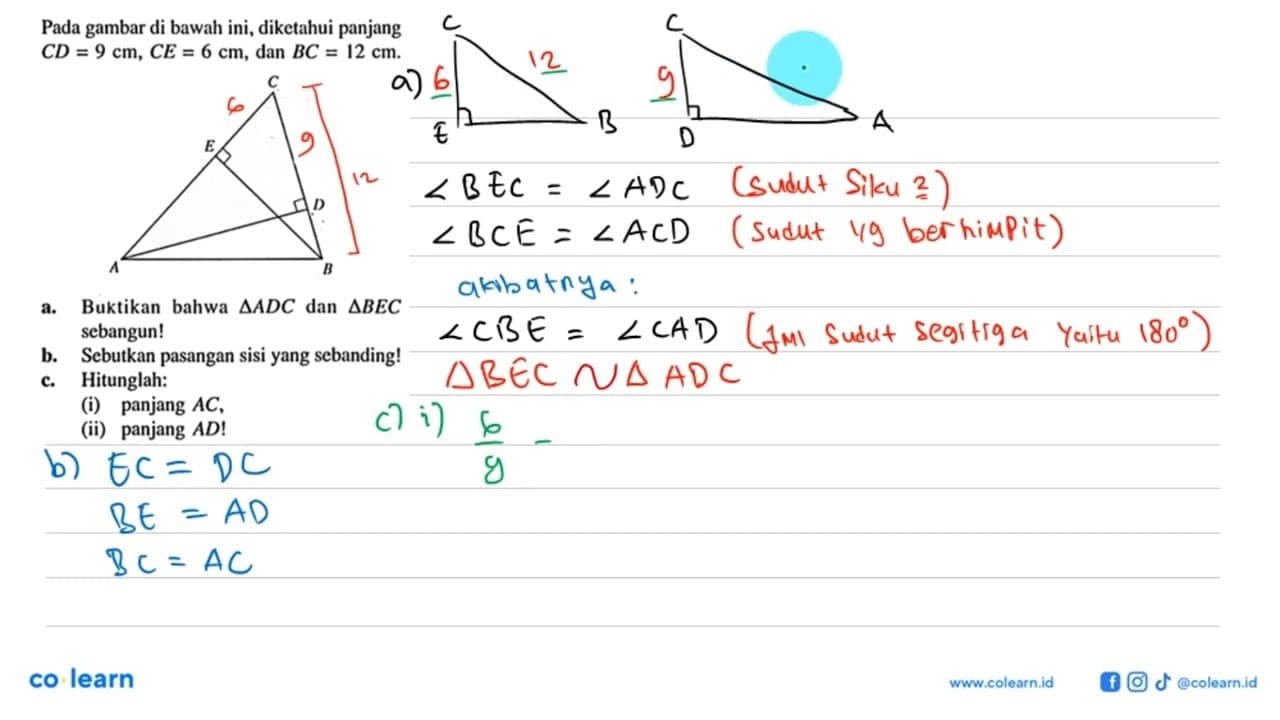 Pada gambar di bawah ini, diketahui panjang
CD = 9 cm, CE = 6 cm, dan BC = 12 cm.
C
6
E
9
12
D
A
B
a. Buktikan bahwa ΔADC dan ΔBEC
sebangun!
b. Sebutkan pasangan sisi yang sebanding!
c. Hitunglah:
(i) panjang AC,
(ii) panjang AD!
a)
C
6
12
E
B
C
9
D
A
∠BEC = ∠ADC (Sudut Siku 2)
∠BCE = ∠ACD (Sudut yg berhimpit)
akibatnya:
∠CBE = ∠CAD (Jml Sudut segitiga yaitu 180°)
Δ BEC ~ Δ ADC
b) EC = DC
BE = AD
BC = AC
c) i) 6/9 =
co·learn
www.colearn.id
@colearn.id